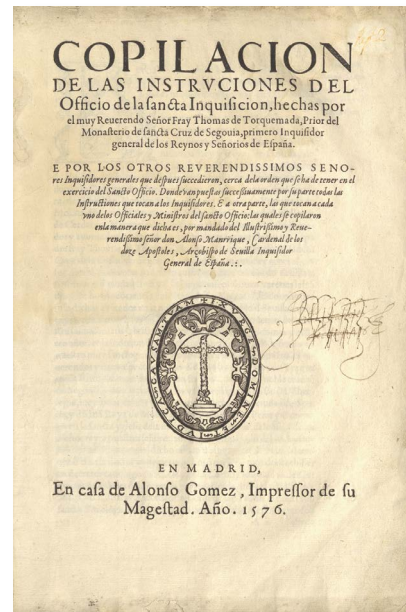 COPILACION
DE LAS INSTRVCIONES DEL
Officio de la sancta Inquisicion, hechas por
el muy Reuerendo Señor Fray Thomas de Torquemada, Prior del
Monasterio de sancta Cruz de Segouia, primero Inquisidor
general de los Reynos y Señorios de España.
E POR LOS OTROS REVERENDISSIMOS SENO-
res Inquisidores generales que despues succedieron, cerca de la orden que se ha de tener en el
exercicio del Sancto Officio. Donde van puestas successiuamente por su parte todas las
Instructiones que tocan a los Inquisidores. E a otra parte, las que tocan a cada
vno de los Officiales y Ministros del sancto Officio: las quales se copilaron
en la manera que dicha es, por mandado del Illustrissimo y Reue-
rendissimo señor don Alonso Manrrique, Cardenal de los
doze Apostoles, Arçobispo de Seuilla Inquisidor
General de España.:.
EXVRGE DOMINE ET IVDICA CAVSAM TVAM
EN MADRID,
En casa de Alonso Gomez, Impressor de su
Magestad. Año. 1576.